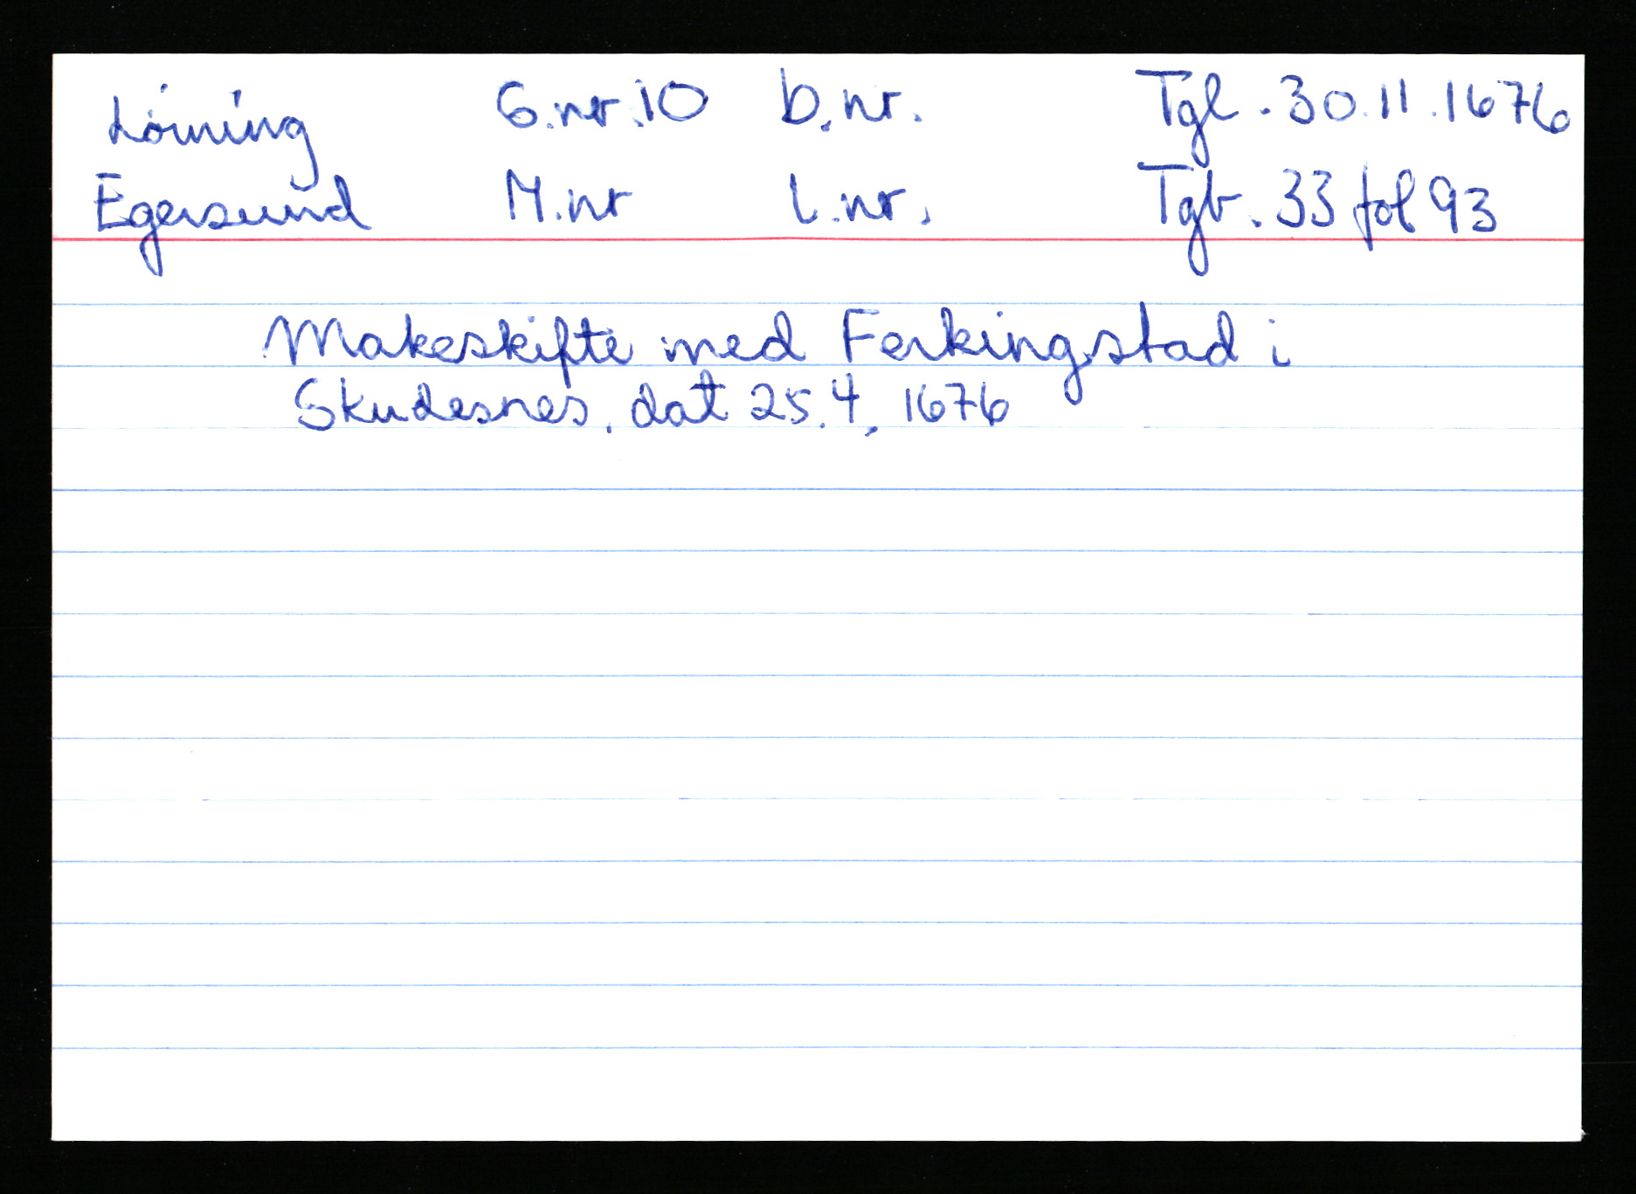 Lörning G.nr.10 b.nr. Tgl. 30.11.1676
Egersund M.nr l.nr. Tgb. 33 fol 93
Makeskifte med Ferkingstad i
Skudesnes, dat 25.4, 1676